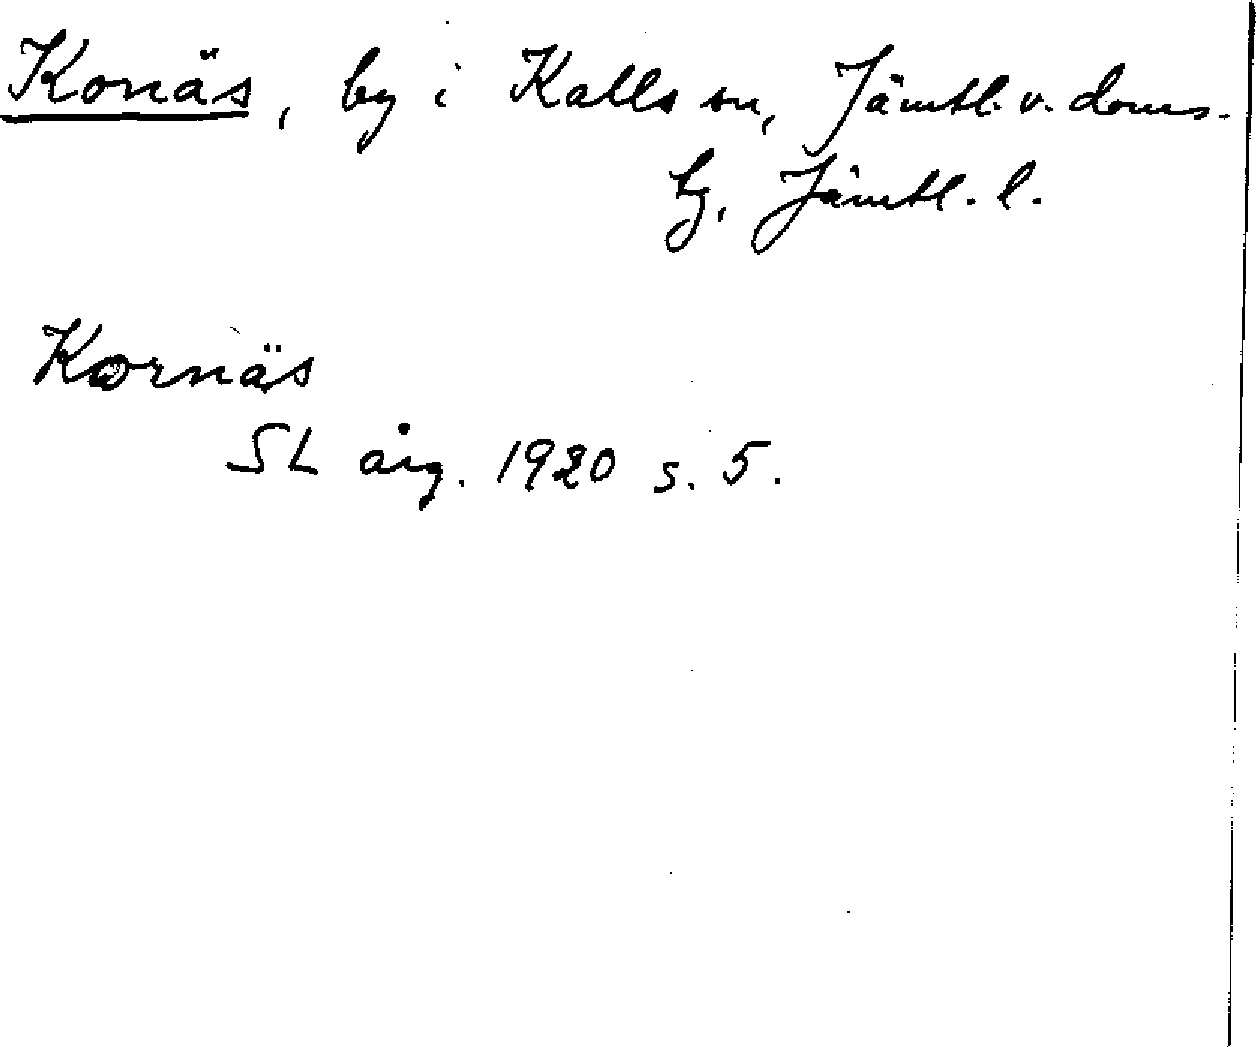 Konäs, by i Kalls sn, Jämtl. v. doms.
hg, Jämtl. l.
Kornäs
SL årg. 1920 s. 5.